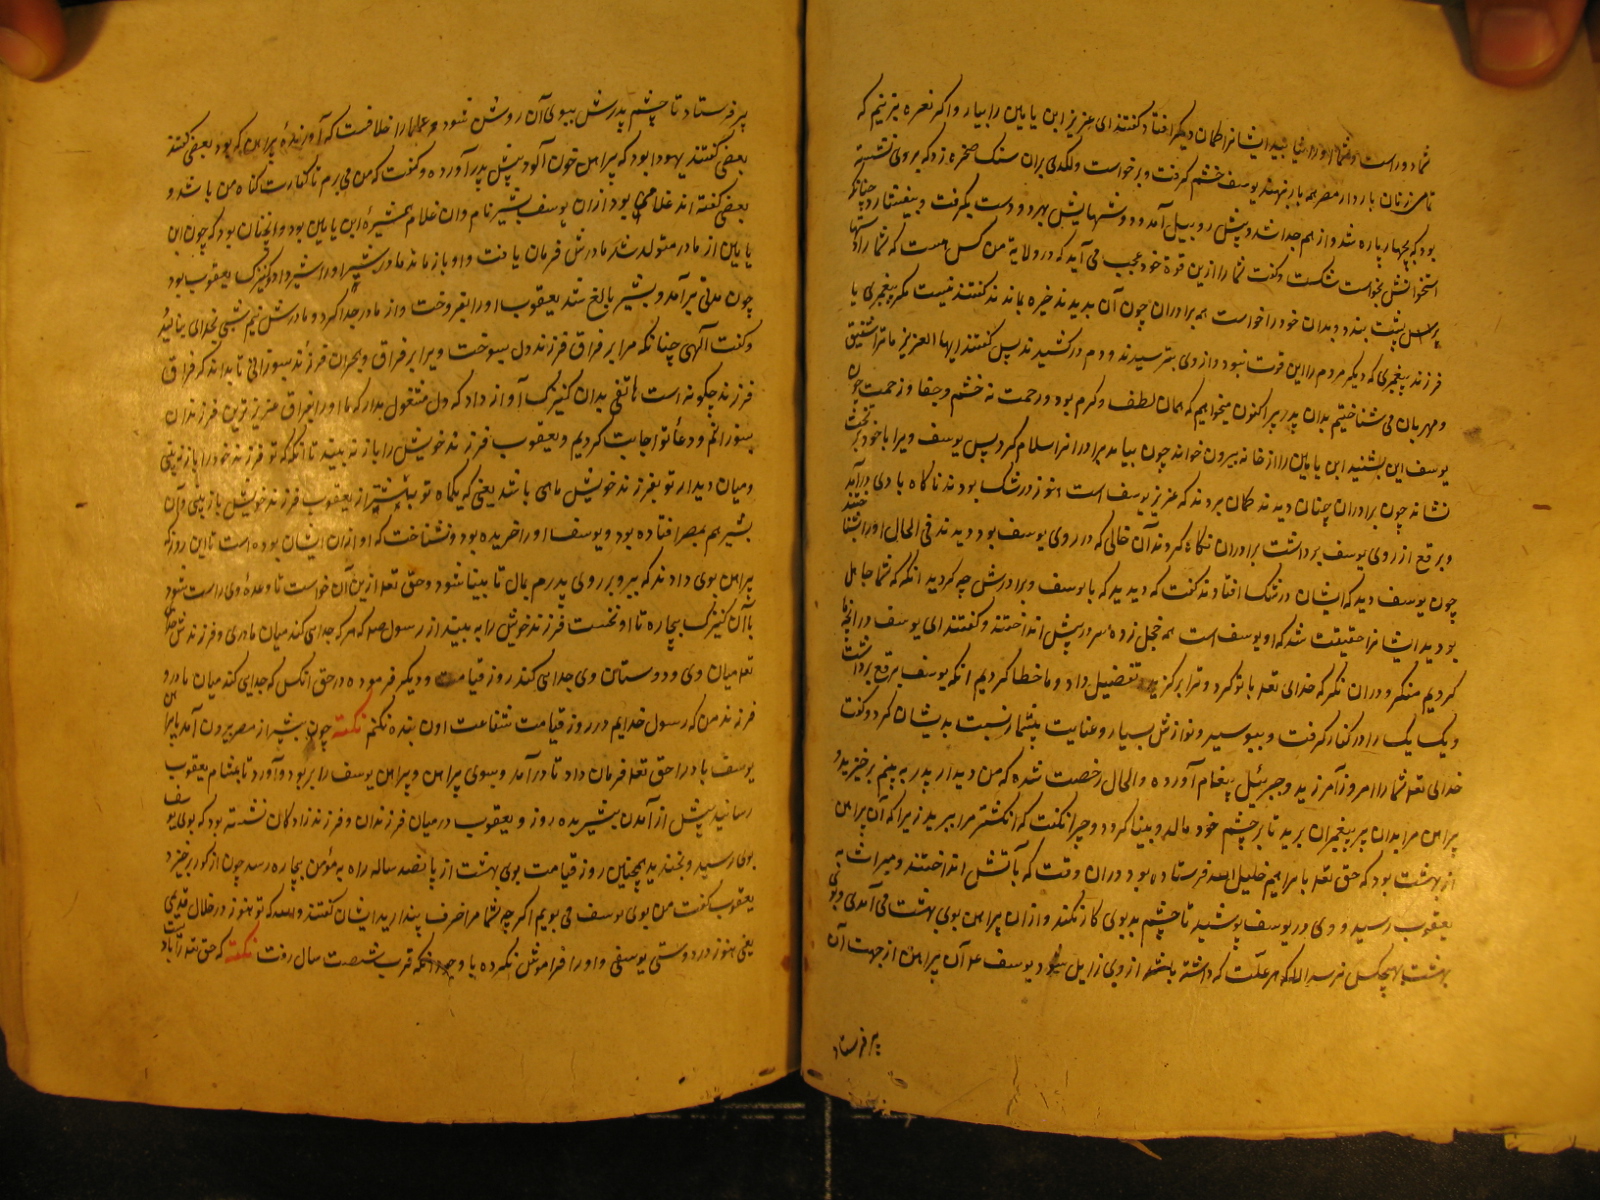 شما دور است و شما او را نیابید ایشانرا طمان دیگر افتاد گفتند ای عزیز ابن یامین را بیار و اگر نعره بزنیم که
تمامی زنان باردار مصر همه بار بنهند یوسف خشم گرفت و برخواست و لگدی بران سنگ صخره زد که بر وی نشسته
بود که بچهار پاره شد و از هم جدا شد و پیش روبیل آمد و دوشهایش بهر دو دست بگرفت و بیفشارد چنانکه
استخوانش بخواست شکست و گفت شما را ازین قوة خود عجب می آید که در ولایة من کس هست که شما را
پشت بیند و بدان خود را خواست همه برادران چون آن بدیدند خیره بماندند گفتند نیست مگر پیغمبری یا
فرزند پیغمبری که دیگر مردم را این قوت نبود و از وی بترسیدند و دم درکشیدند پس گفتند ایها العزیز ما ترا شفیق
و مهربان می شناختیم بدان پدر پیر اکنون میخواهیم که همان لطف و کرم بود و رحمت نه خشم و جفا و زحمت چون
یوسف این بشنید ابن یامین را از خانه بیرون خواند چون بیامد برادرانرا سلام کرد پس یوسف ویرا با خود بر تخت
نشاند چون برادران چنان دیدند گمان بردند که عزیز یوسف است هنوز در شک بودند ناگاه بادی درآمد
و برقع از روی یوسف برداشت برادران نگاه کردند آن خالی که در روی یوسف بود دیدند فی الحال او را بشناختند
چون یوسف دید که ایشان در شک افتادند گفت که دیدید که با یوسف و برادرش چه کردید انگه که شما جاهل
بودید ایشانرا حقیقت شد که او یوسف است همه خجل زده سر در پیش انداختند و گفتند ای یوسف در آنچه ما
کردیم منگر و دران نگر که خدای تعه با تو کرد و ترا برگزید و تفضیل داد و ما خطا کردیم انگه یوسف برقع برداشت
و یک یک را در کنار گرفت و ببوسید و نوازش بسیار و عنایت بیشمار نسبت بدیشان کرد و گفت
خدای تعه شما را امروز آمرزید و جبرئیل پیغام آورده و الحال رخصت شده که من دیدار پدر به بینم برخیزید و
پیراهن مرا بدان پیر پیغمبران برید تا بر چشم خود مالد و بینا گردد و چرا نگفت که انگشتر مرا ببرید زیرا که آن پیراهن
از بهشت بود که حق تعه با مر ابراهیم خلیل الله فرستاده بود دران وقت که بآتشش انداختند و میراث به
یعقوب رسید و وی در یوسف پوشید تا چشم بد بوی کار نکند و ازان پیراهن بوی بهشت می آمدی و بوی
بهشت بهیچکس نرسد الا که هر علت که داشته باشد از وی زایل شود یوسف عه آن پیراهن از جهت آن
پیر فرستاد
پیر فرستاد تا چشم پدرش ببوی آن روشن شود و علما را خلافست که آورندۀ پیراهن که بود بعضی گفتند
بعضی گفتند یهودا بود که پیراهن خون آلود پیش پدر آورده و گفت که من می برم تا کفارت گناه من باشد و
بعضی گفته اند غلامی بود ازان یوسف بشیر نام و ان غلام همشیرۀ ابن یامین بود و انچنان بود که چون ابن
یامین از مادر متولد شد مادرش فرمان یافت و او باز ماند مادر بشیر او را شیر داد و کنیزک یعقوب بود
چون مدتی برآمد و بشیر بالغ شد یعقوب او را بفروخت و از مادر جدا کرد و مادرش نیم شبی بخدای بنالید
و گفت آلهی چنانکه مرا بر فراق فرزند دل سوخت ویرا بر فراق و بجران فرزند بسورانی تا بداند که فراق
فرزند چگونه است هاتفی بدان کنیزک آواز داد که دل مشغول مدار که ما او را بفراق عزیز ترین فرزندان
بسورانم و دعأ تو اجابت کردیم و یعقوب فرزند خویش را باز نه بیند تا انگه که تو فرزند خود را باز نه بینی
و میان دیدار تو بفرزند خویش ماهی باشد یعنی که یکماه تو بیشتر از یعقوب فرزند خویش باز بینی و آن
بشیر هم بمصر افتاده بود و یوسف او را خریده بود و نشناخت که او ازان ایشان بوده است تا این روز که
پیراهن بوی دادند که ببر و بر روی پدرم بمال تا بینا شود و حق تعه ازین آن خواست تا وعدۀ وی راست شود
با آن کنیزک بیچاره تا او نخست فرزند خویش را به بیند از رسول صه که هر که جدایی کند میان مادری و فرزندش خدای
تعه میان وی و دوستان وی جدایی کند روز قیامت و دیگر فرموده در حق انکس که جدایی کند میان مادر و
فرزند من که رسول خدایم در روز قیامت شفاعت اون بنده نکنم نکته چون بشیر از مصر بیرون آمد با پیراهن
یوسف باد را حق تعه فرمان داد تا درآمد و بوی پیراهن و پیراهن یوسف را بربود و آورد تا بمشام یعقوب
رسانید پیش از آمدن بشیر بده روز و یعقوب در میان فرزندان و فرزندزادگان نشسته بود که بوی یوسف
بوی رسید و بخندید همچنین روز قیامت بوی بهشت از پانصد ساله راه به مؤمن بیچاره رسد چون از گور برخیزد
یعقوب گفت من بوی یوسف می بویم اگر چه شما مرا خرف پندارید ایشان گفتند والله که تو هنوز در ضلال قدیمی
یعنی هنوز در دوستی یوسفی و او را فراموش نکرده با وجود آنکه قرب شصت سال رفت نکته که حق تعه را باد